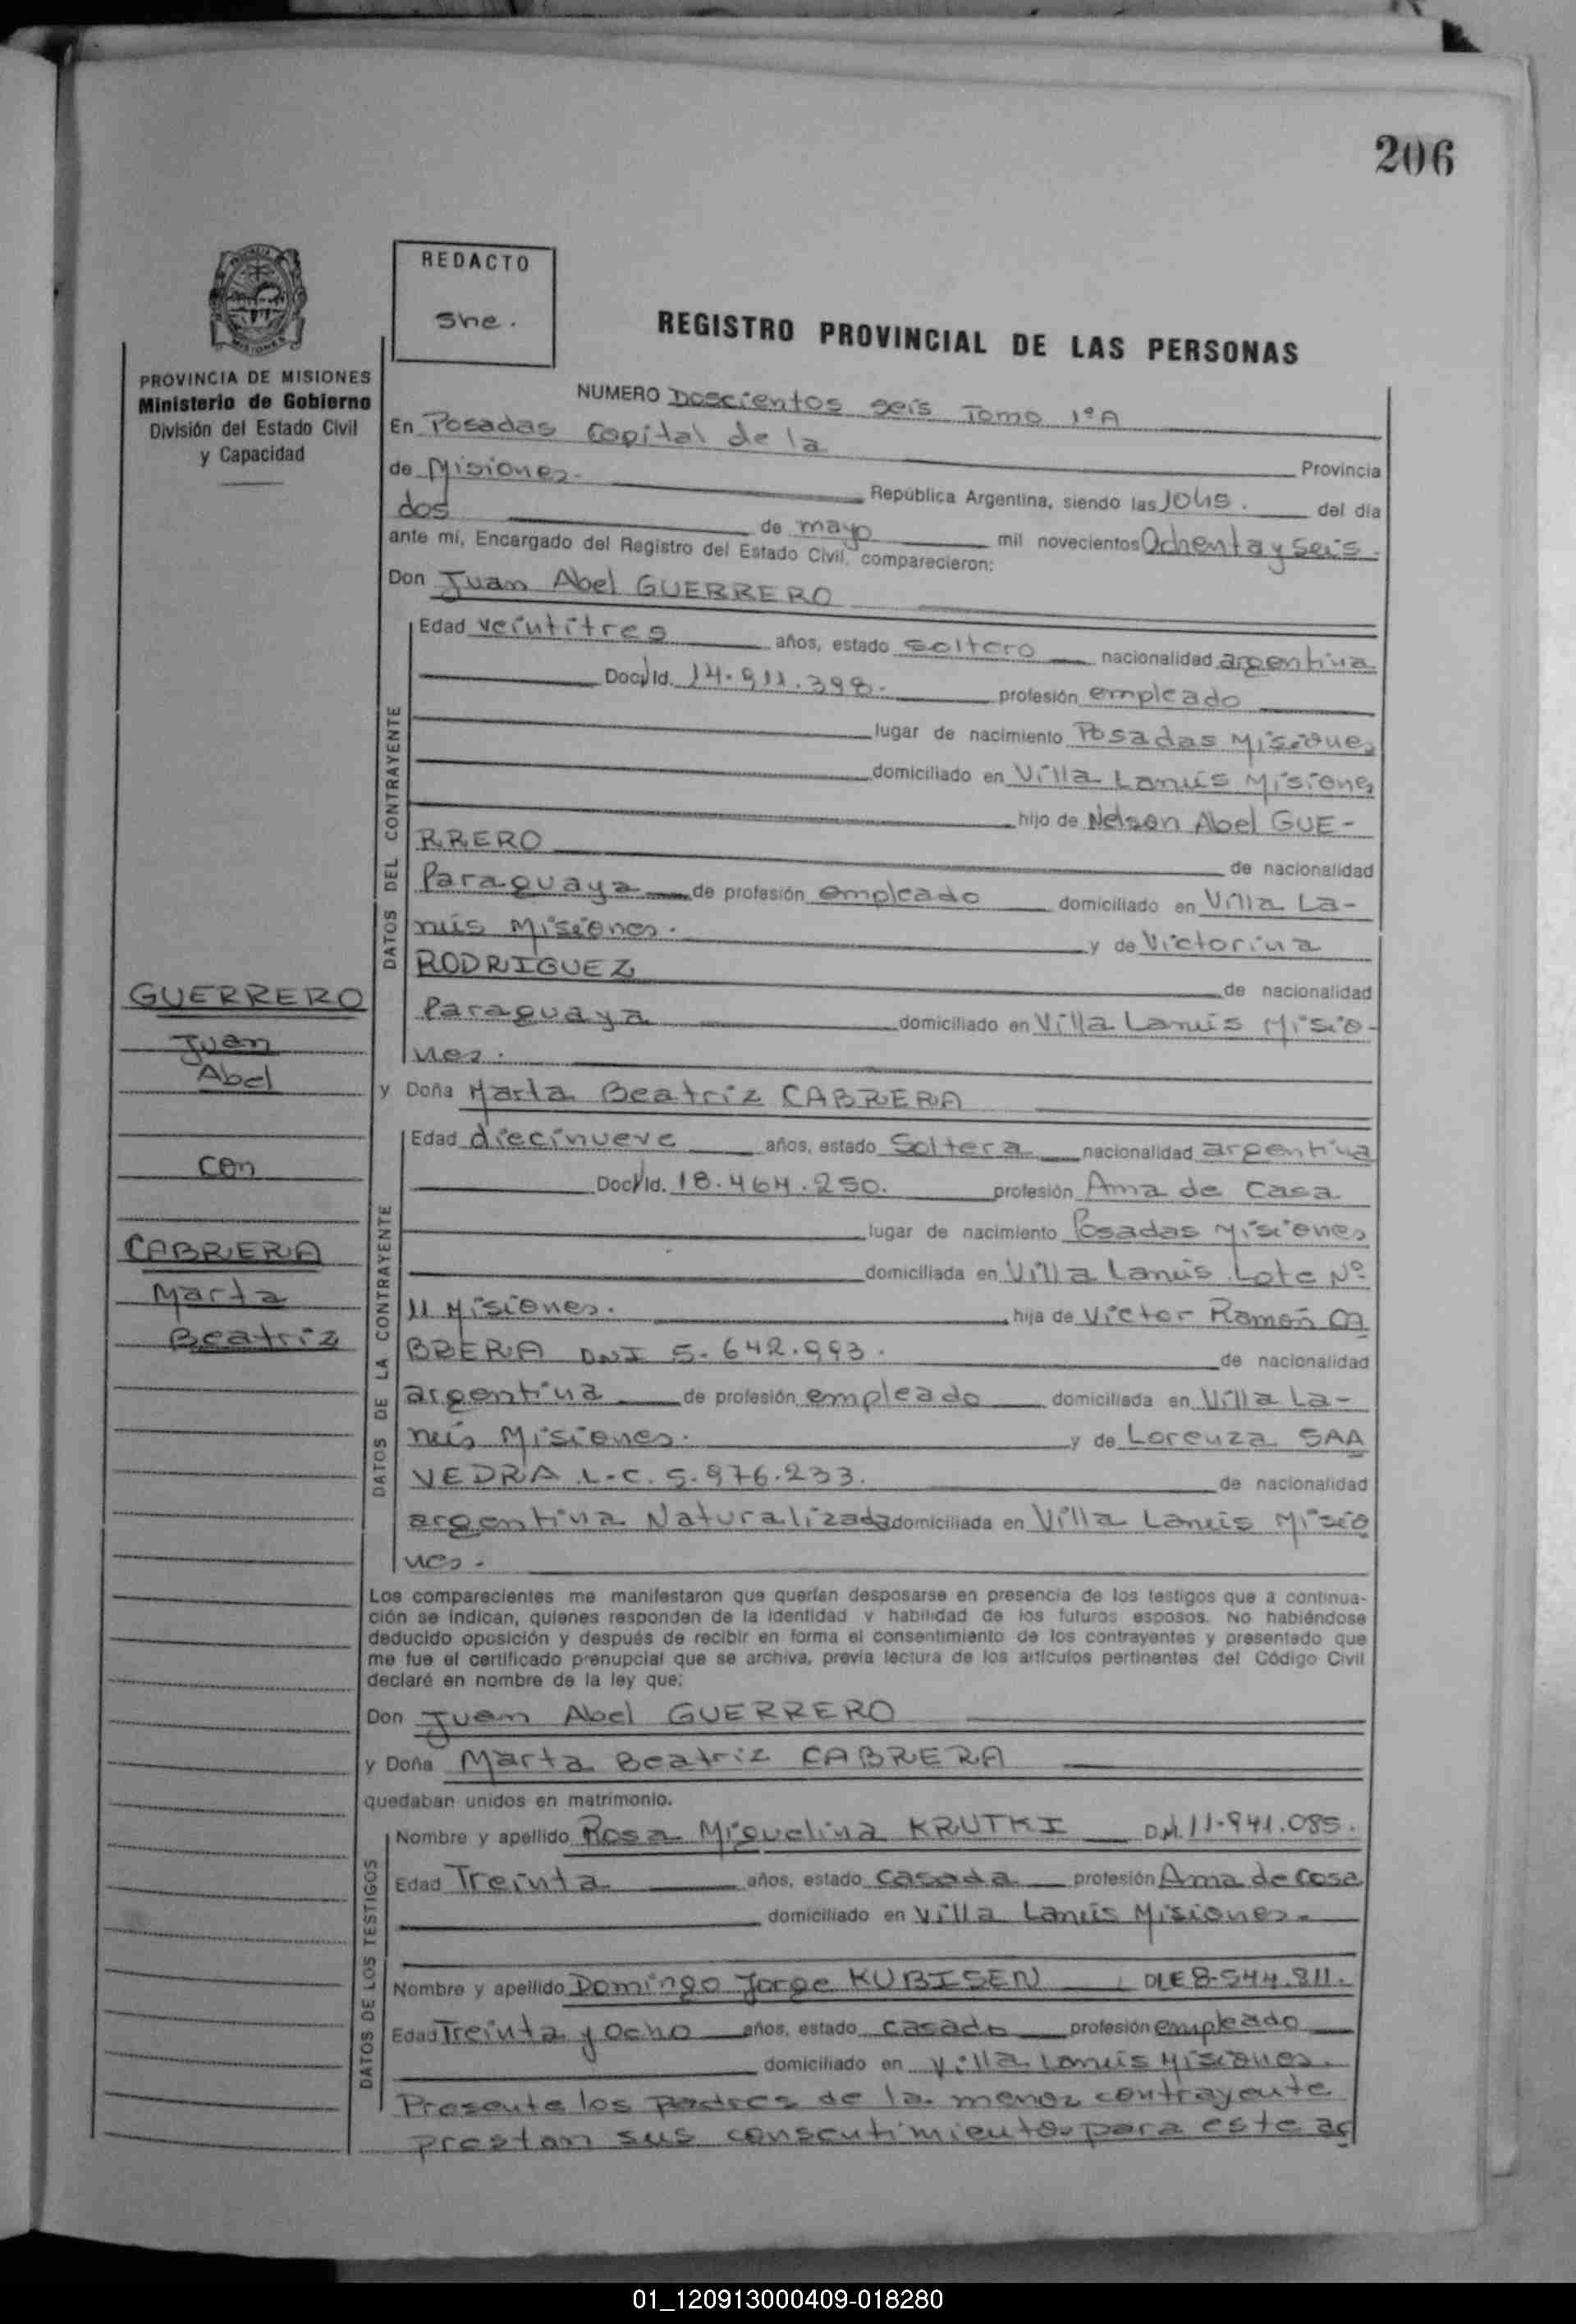 206
REDACTO
she.
REGISTRO PROVINCIAL DE LAS PERSONAS
PROVINCIA DE MISIONES
Ministerio de Gobierno
División del Estado Civil
y Capacidad
NUMERO Doscientos seis Tomo 1º A
En Posadas Capital de la Provincia
de Misiones. República Argentina, siendo las 10hs. del día
dos de mayo mil novecientos Ochenta y Seis.
ante mí, Encargado del Registro del Estado Civil, comparecieron:
Don Juan Abel GUERRERO
DATOS DEL CONTRAYENTE
Edad veintitres años, estado soltero nacionalidad argentina
Doc. Id. 14.911.398. profesión empleado
lugar de nacimiento Posadas Misiones
domiciliado en Villa Lanús Misiones
hijo de Nelson Abel GUE-
RRERO de nacionalidad
Paraguaya de profesión empleado domiciliado en Villa La-
nús Misiones. y de Victorina
RODRIGUEZ de nacionalidad
Paraguaya domiciliado en Villa Lanús Misio-
nes.
GUERRERO
Juan
Abel
con
CABRERA
Marta
Beatriz
y Doña Marta Beatriz CABRERA
DATOS DE LA CONTRAYENTE
Edad diecinueve años, estado Soltera nacionalidad argentina
Doc. Id. 18.464.250. profesión Ama de Casa
lugar de nacimiento Posadas Misiones
domiciliada en Villa Lanús Lote Nº
11 Misiones. hija de Victor Ramón CA
BRERA DNI 5.642.993. de nacionalidad
argentina de profesión empleado domiciliada en Villa La-
nús Misiones. y de Lorenza SAA
VEDRA L.C. 5.976.233. de nacionalidad
argentina Naturalizada domiciliada en Villa Lanús Misio
nes.
Los comparecientes me manifestaron que querían desposarse en presencia de los testigos que a continua-
ción se indican, quienes responden de la identidad y habilidad de los futuros esposos. No habiéndose
deducido oposición y después de recibir en forma el consentimiento de los contrayentes y presentado que
me fue el certificado prenupcial que se archiva, previa lectura de los artículos pertinentes del Código Civil
declaré en nombre de la ley que:
Don Juan Abel GUERRERO
y Doña Marta Beatriz CABRERA
quedaban unidos en matrimonio.
DATOS DE LOS TESTIGOS
Nombre y apellido Rosa Miguelina KRUTKI D.N. 11.941.085.
Edad Treinta años, estado casada profesión Ama de casa
domiciliado en Villa Lanús Misiones.
Nombre y apellido Domingo Jorge KUBISEN DIE 8.544.811.
Edad Treinta y Ocho años, estado casado profesión empleado
domiciliado en Villa Lanús Misiones.
Presente los padres de la menor contrayente
prestan sus consentimientos para este ac
01_120913000409-018280